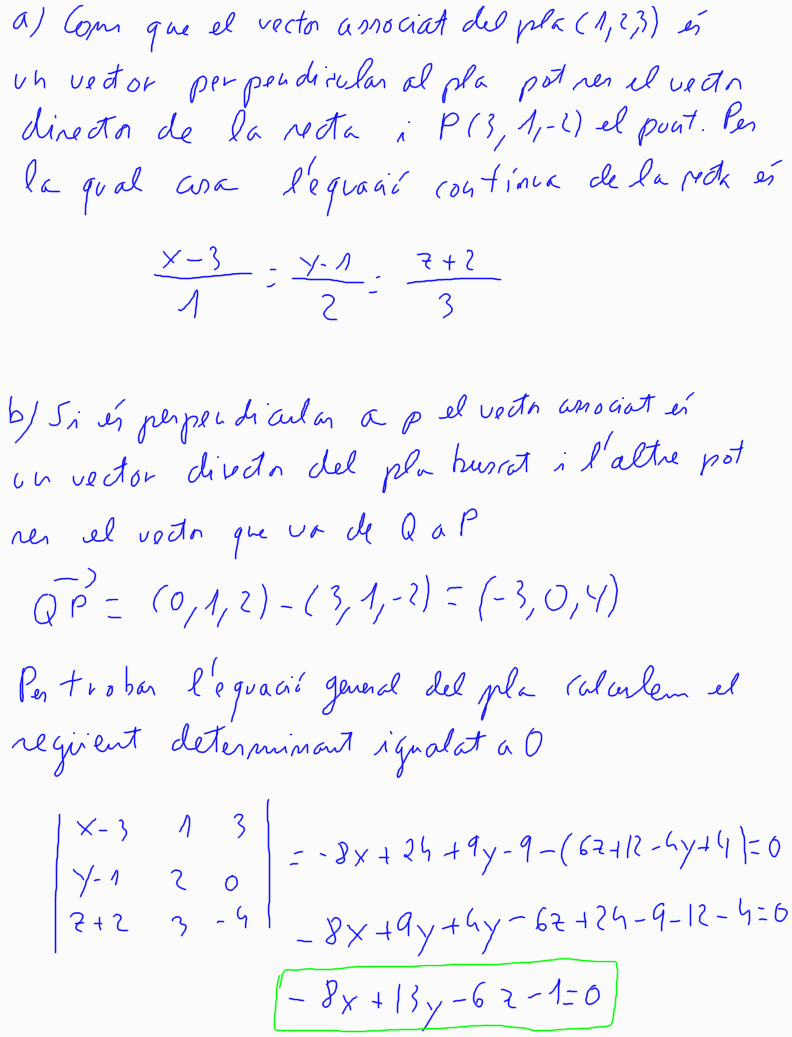 a) Com que el vector associat del pla (1,2,3) és
un vector perpendicular al pla pot ser el vector
director de la recta i P(3, 1,-2) el punt. Per
la qual cosa l'equació contínua de la recta és
x-3 / 1 = y-1 / 2 = z+2 / 3
b) Si és perpendicular a p el vector associat és
un vector director del pla buscat i l'altre pot
ser el vector que va de Q a P
QP = (0,1,2) - (3,1,-2) = (-3,0,4)
Per trobar l'equació general del pla calculem el
següent determinant igualat a 0
| x-3 1 3 |
| y-1 2 0 | = -8x + 24 + 9y - 9 - (6z+12-4y+4) = 0
| z+2 3 -4 |
-8x + 9y + 4y - 6z + 24 - 9 - 12 - 4 = 0
-8x + 13y - 6z - 1 = 0